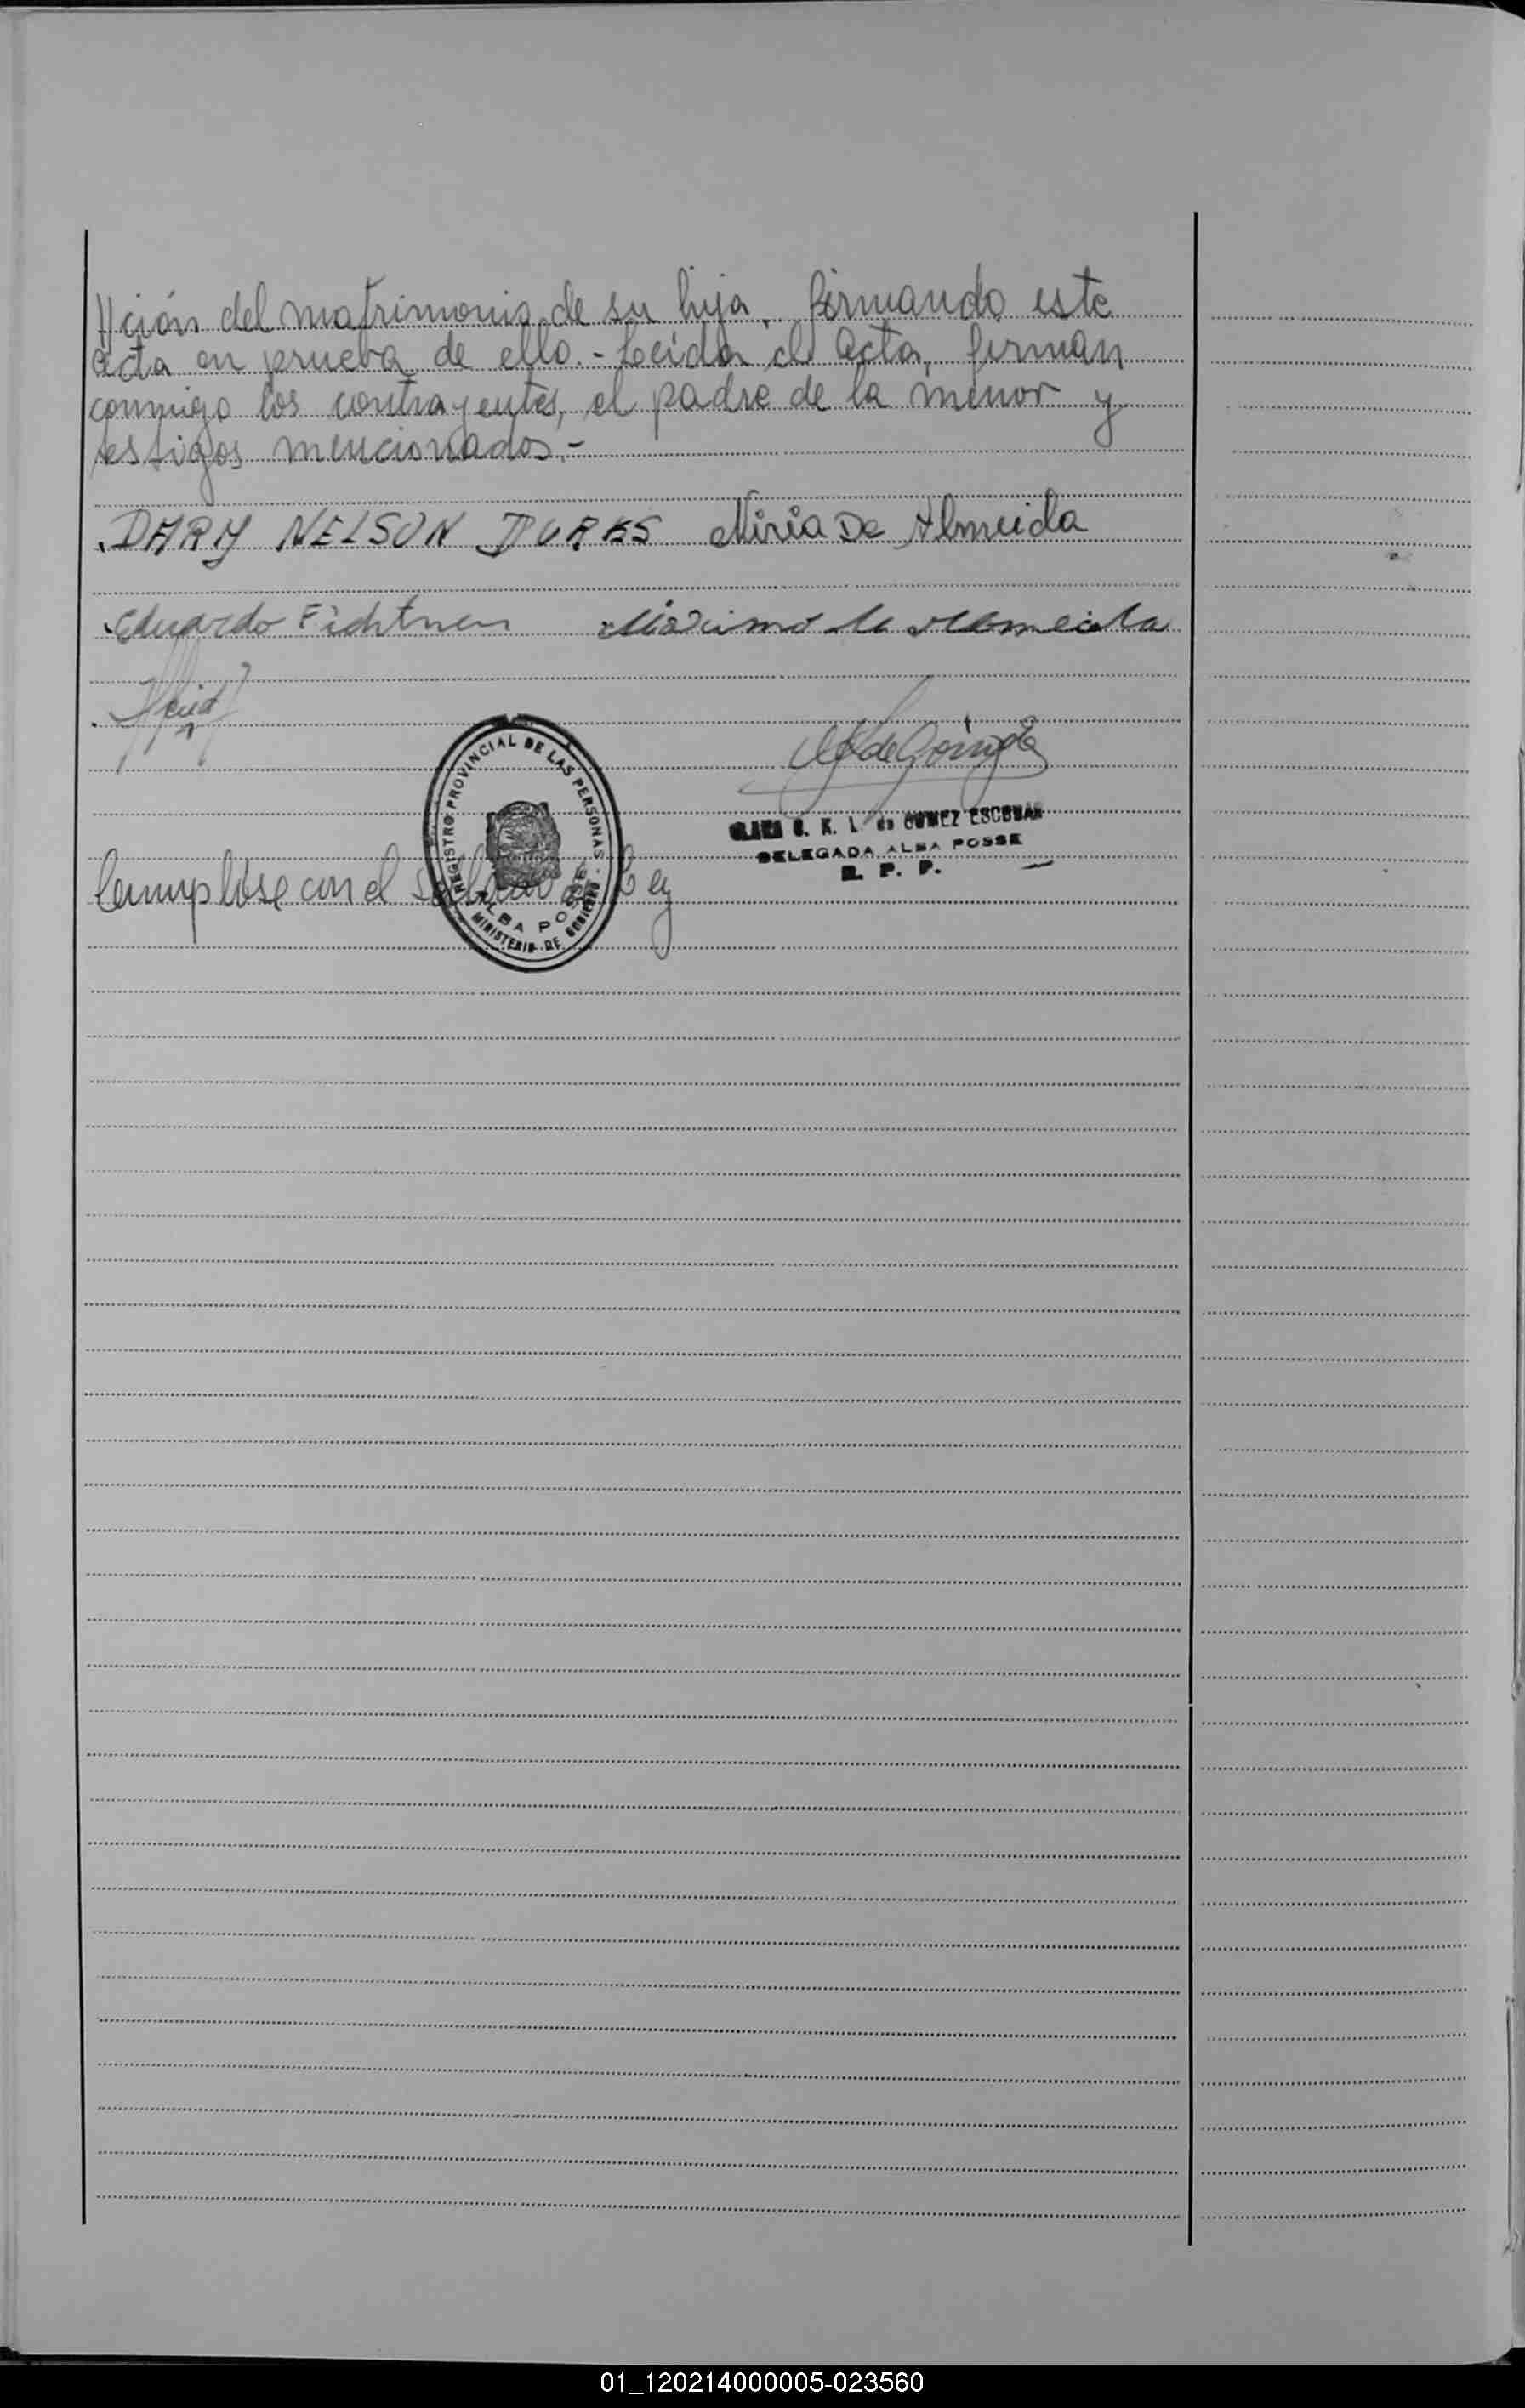 //ción del matrimonio de su hija, firmando este
acta en prueba de ello.- Leída el Acta, firman
conmigo los contrayentes, el padre de la menor y
testigos mencionados.-
DARY NELSON DURKS Miria De Almeida
Eduardo Fichtner Maximo de Almeida
REGISTRO PROVINCIAL DE LAS PERSONAS
ALBA POSSE
MINISTERIO DE GOBIERNO
de GOMEZ ESCOBAR
DELEGADA ALBA POSSE
R. P. P.
Cumplose con el sellado de Ley
01_120214000005-023560